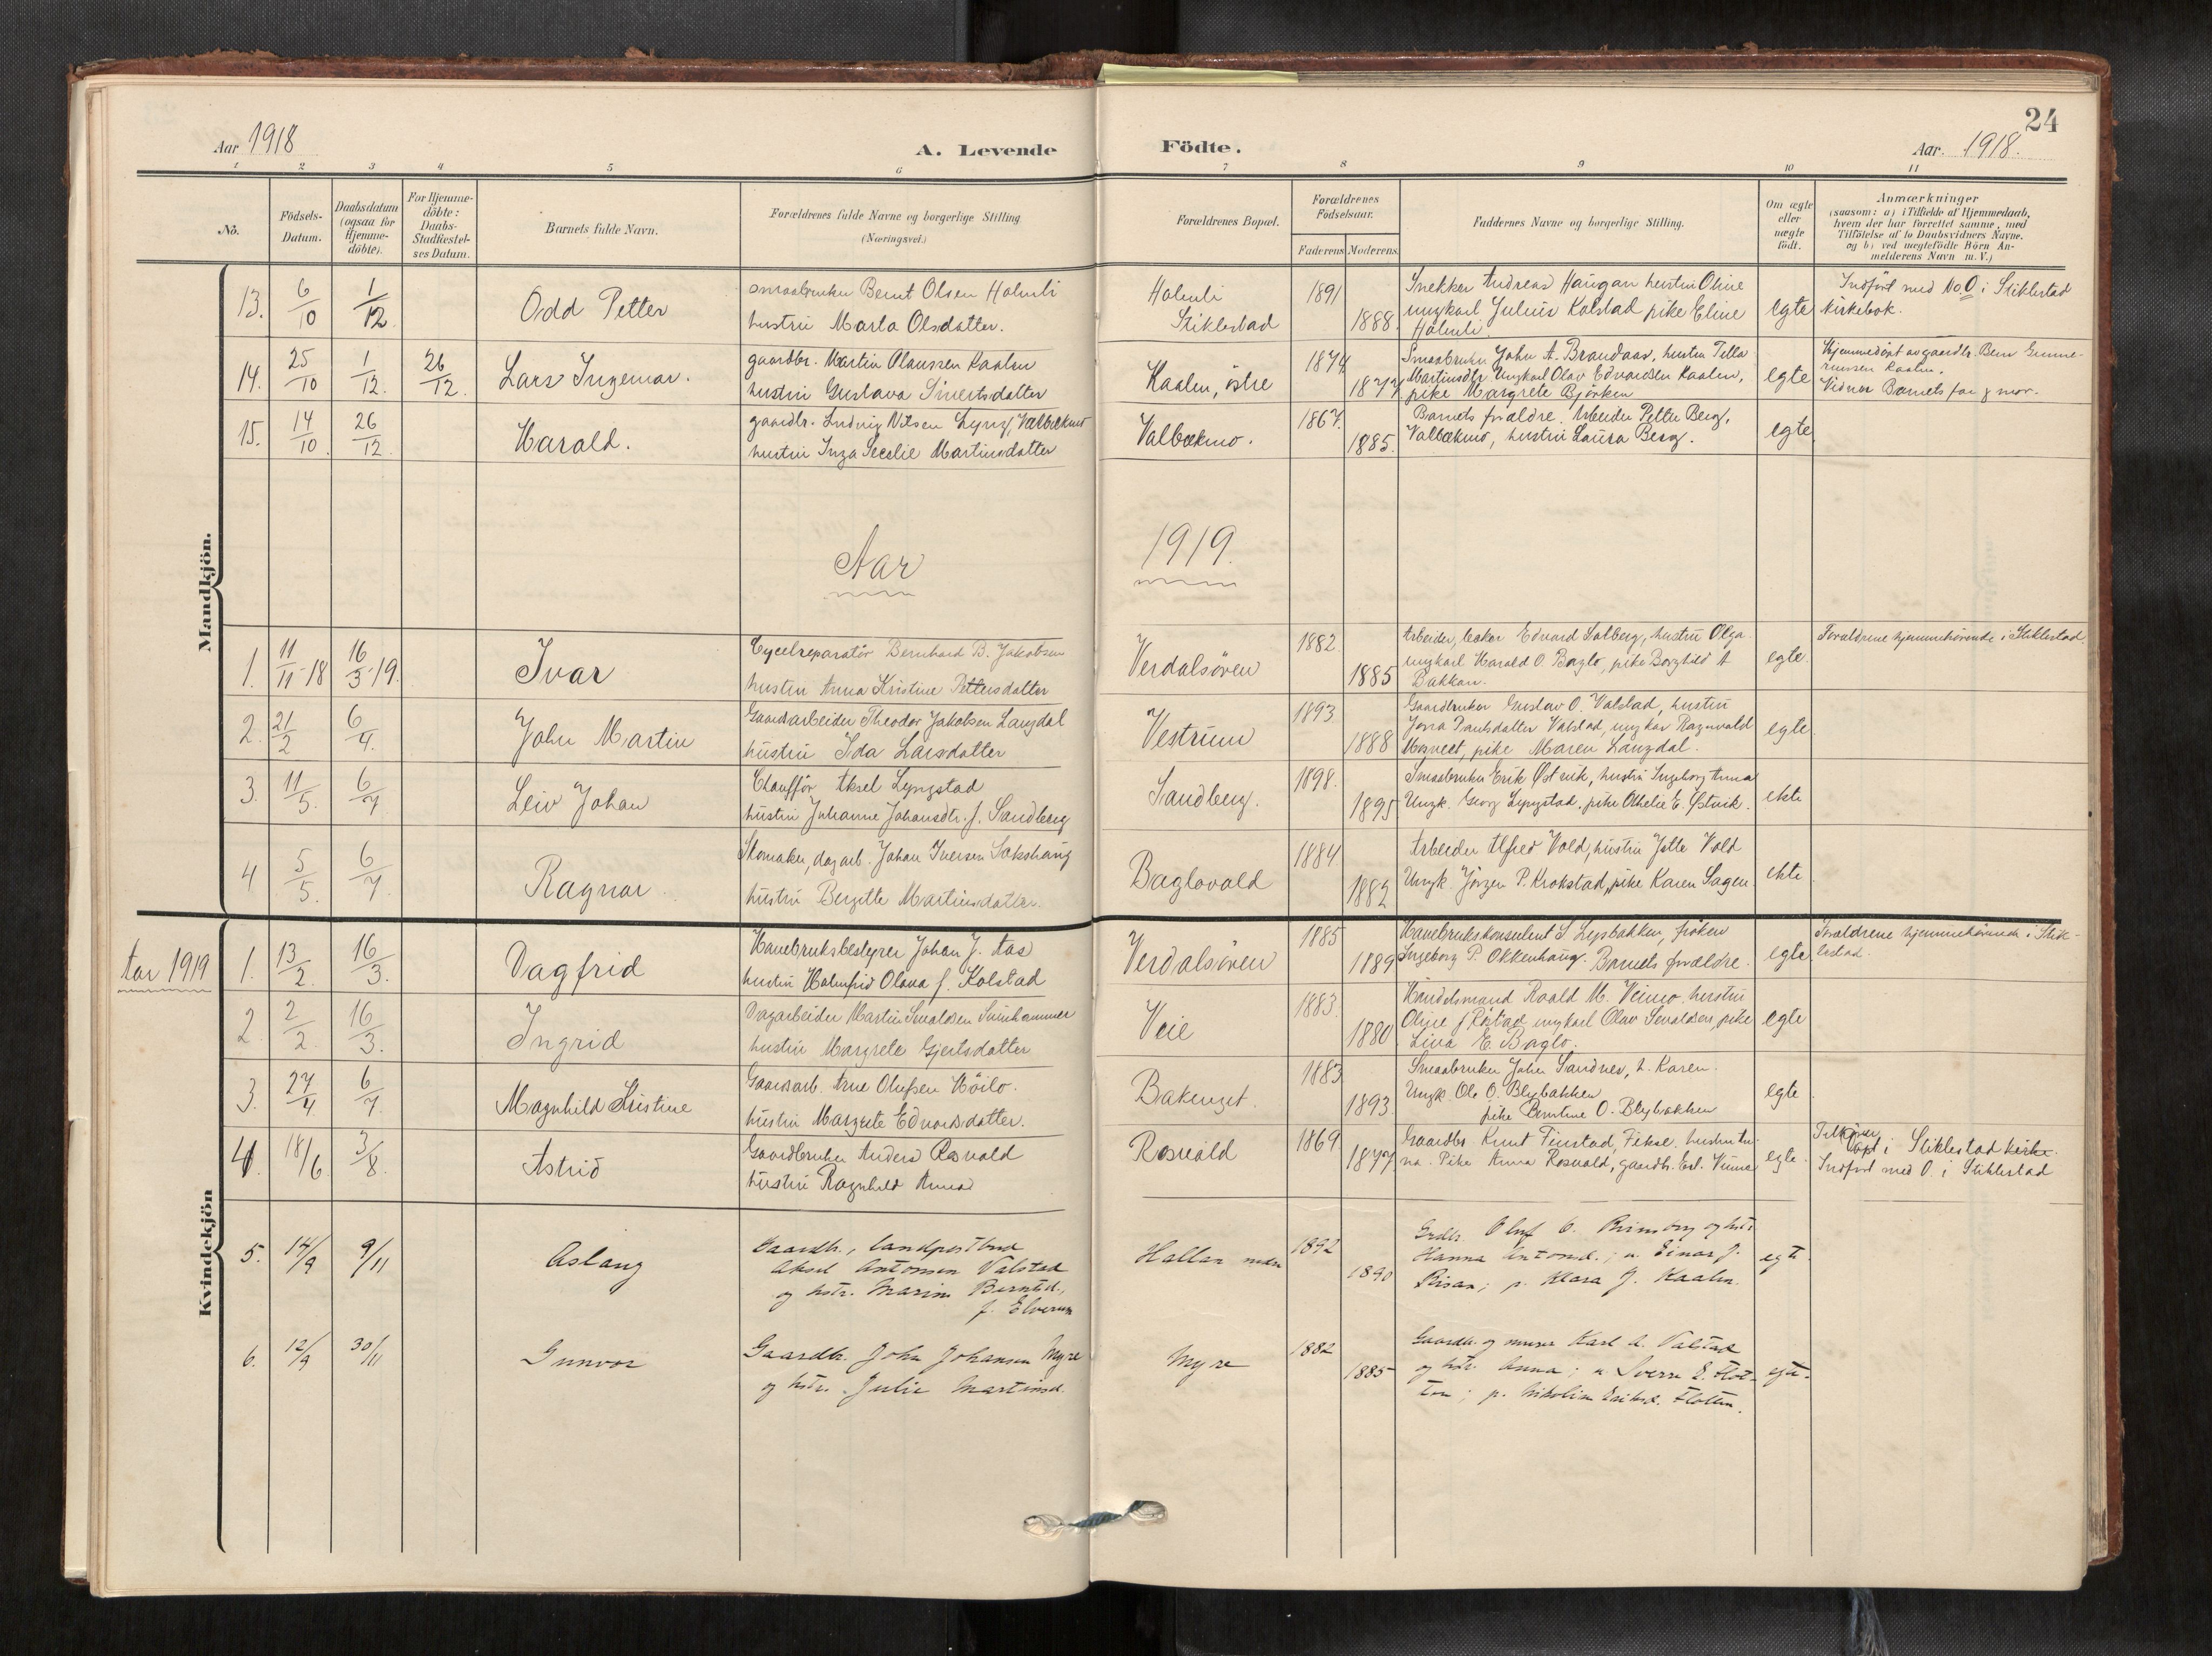 24
Aar 1918
A. Levende
Födte.
Aar. 1918.
1 2 3 4 5 6 7 8 9 10 11
No.
Födsels-
Datum.
Daabsdatum
(ogsaa for
Hjemme-
döbte).
For Hjemme-
döbte:
Daabs-
Stadfæstel-
ses Datum.
Barnets fulde Navn.
Forældrenes fulde Navne og borgerlige Stilling
(Næringsvei.)
Forældrenes Bopæl.
Forældrenes
Födselsaar.
Faderens Moderens
Faddernes Navne og borgerlige Stilling.
Om ægte
eller
uægte
födt.
Anmærkninger
(saasom: a) i Tilfælde af Hjemmedaab,
hvem der har forrettet samme, med
Tilföielse af to Daabsvidners Navne.
og b) ved uægtefödte Börn An-
melderens Navn m. V.)
Mandkjön.
13. 6/10 1/12. Odd Petter
smaabruker Bernt Olsen Holmli
hustru Marta Olsdatter.
Holmli
Stiklestad
1891
1888.
Snekker Andreas Haugan hustru Oline
ungkarl Julius Kolstad pike Eline
Holmli.
egte
Indført med No. O i Stiklestad
kirkebok.
14. 25/10 1/12. 26/12. Lars Ingemar.
gaardbr. Martin Olaussen Kaalen
hustru Gustava Sivertsdatter
Kaalen, östre
1874
1877.
Smaabruker John A. Brandaas, hustru Tilla
Martinsdtr Ungkarl Olav Edvardsen Kaalen,
pike Margrete Björken
egte
Hjemmedöpt av gaardbr. Bern Gunne-
riussen Kaalen.
Vidner Barnets far & mor.
15. 14/10. 26/12. Harald.
gaardbr. Ludvig Nilsen Lyng, Valbækmo
hustru Inga Martinsdatter
Valbækmo.
1867.
1885.
Barnets forældre. Petter Berg,
Valbækmo, hustru Laura Berg.
egte
Aar 1919.
1. 11/11-18 16/3-19. Ivar
Cycelreparatör Bernhard B. Jakobsen
hustru Anna Kristine Pettersdatter
Verdalsören
1882.
1885
Arbeider, Edvard Solberg, hustru Olga
ungkarl Harald O. Baglo, pike Borghild A
Bakkan.
egte.
Forældrene hjemmehörende i Stiklestad.
2. 21/2 6/4. John Martin
Gaardsarbeider Theodor Jakobsen Langdal
hustru Ida Larsdatter
Vestrum
1893.
1888
Gaardbruker Gustav O. Valstad, hustru
Paulsdatter Valstad, ungkar Ragnvald
pike Maren Langdal.
egte.
3. 11/5. 6/7 Leiv Johan
Chauffør Aksel Lyngstad
hustru Julianne Johansdtr. f. Sandberg
Sandberg.
1898.
1895
Smaabruker Erik Østvik, hustru Ingeborg Anna
Ungk. Georg Lyngstad, pike Othelie E. Østvik.
ekte
4 5/5. 6/7 Ragnar
Skomaker, dagarb. Johan Iversen Sakshaug
hustru Bergitte Martinsdatter.
Baglovald
1884
1882
Arbeider Alfred Vold, hustru Jette Vold
Ungk. Jörgen P. Krokstad, pike Karen Sagen
ekte
Aar 1919
Kvindekjön
1. 13/2. 16/3. Dagfrid
Havebruksbestyrer Johan J. Aas
hustru Holmfrid Olava f. Kolstad
Verdalsören
1885
1889
Havebrukskonsulent S Lysbakken, frøken
Ingeborg P. Okkenhaug. Barnets forældre.
egte
Forældrene hjemmehörende i Stik-
lestad.
2 2/2 16/3. Ingrid
Dagarbeider Martin Sevaldsen Svinhammer
hustru Margrete Gjertsdatter
Veie
1883.
1880
Handelsmand Roald M. Veimo, hustru
Oline f Röstad, ungkarl Olav Sevaldsen, pike
Lina E. Baglo.
egte
3. 27/4 6/7 Magnhild Kristine
Gaardsarb. Arne Olufsen Höilo.
hustru Margrete Edvardsdatter.
Bakenget.
1883
1893.
Smaabruker John Sandnes, h. Karen.
Ungk. Ole O. Blybakken
pike Berntine O. Blybakken
egte
4. 18/6 3/8 Astrid
Gaardbruker Anders Rosvald
hustru Ragnhild Anna
Rosvald
1869
1877
Gaardbr. Knut Feirstad, Fikse, hustru An-
na. Pike Anna Rosvald, gaardb. Vinne
egte.
Tilhører
Döpt i Stiklestad kirke.
Indført med O. i Stiklestad
5. 14/9 9/11 Aslaug
Gaardb., landpostbud
Aksel Antonsen Valstad
og hstr. Marie Berntsd.,
f. Elverum
Hallan nedre
1892
1890
Grdbr. Oluf O. Brinsberg og hstr
Hanna Antonsd.; u. Einar J.
Risan; p. Klara J. Kaalen.
egte.
6. 12/9 30/11 Gunvor
Gaardb. John Johansen Myre
og hstr. Julie Martinsd.
Myre
1882
1885
Gaardb. og murer Karl A. Valstad
og hstr. Anna; u Sverre E. Flot-
ten; p. Nikoline Eriksd. Flotten.
egte.